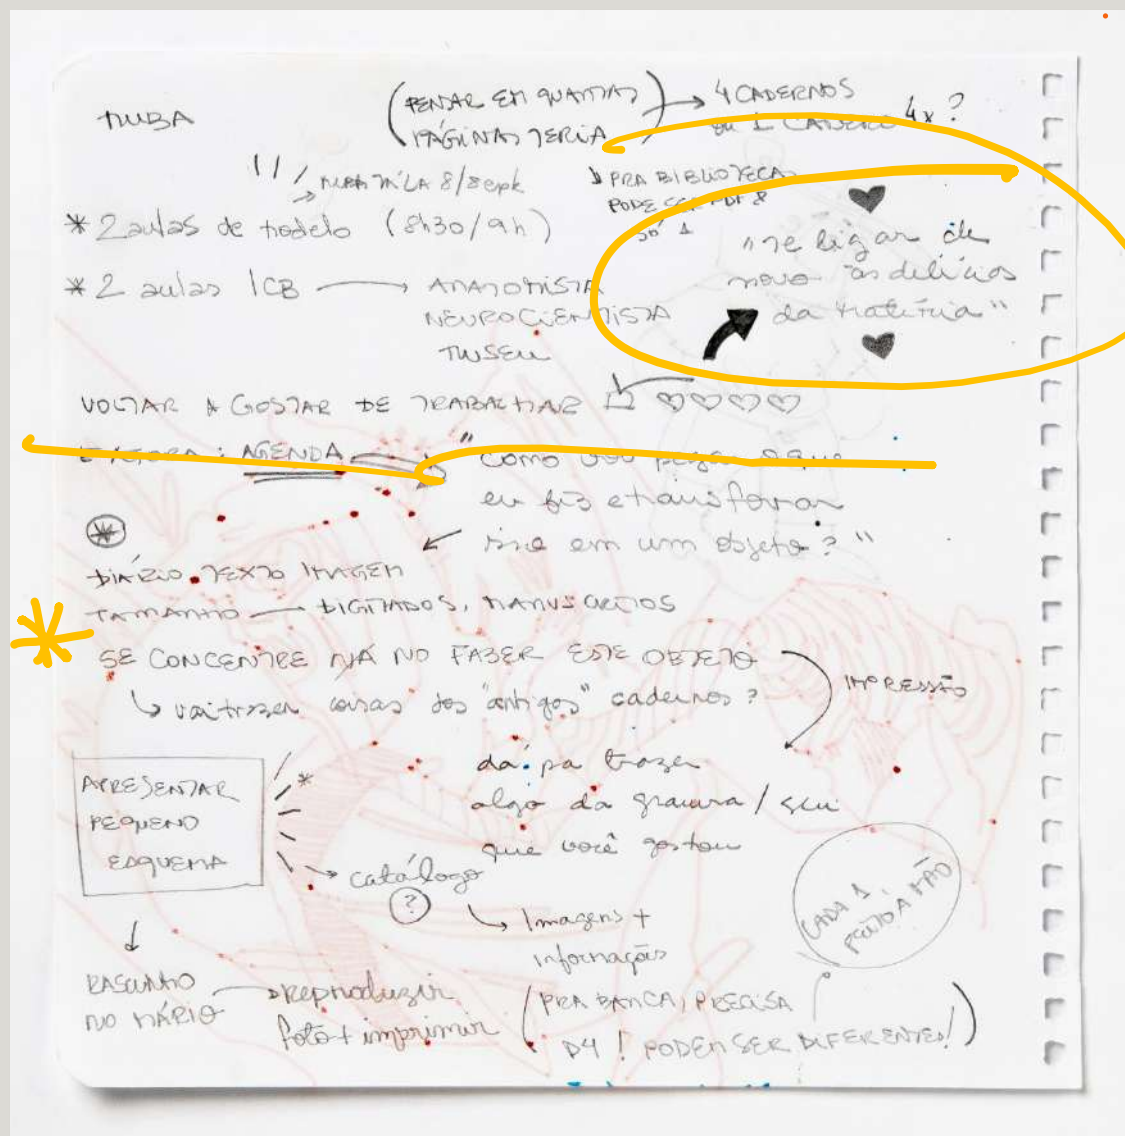 NUBA
(PENSAR EM QUANTAS
PÁGINAS TERIA)
4 CADERNOS
ou 1 CADERNO 4x?
8/sept
PRA BIBLIOTECA
PODE SER PDF &
só 1
* 2 aulas de modelo (8h30/9h)
* 2 aulas ICB
ANATOMISTA
NEUROCIENTISTA
MUSEU
"re ligar de
novo as delícias
da matéria"
VOLTAR A GOSTAR DE TRABALHAR
E AGORA: AGENDA
"como vou pegar o que
eu fiz e transformar
isso em um objeto?"
DIÁRIO. TEXTO IMAGEM
TAMANHO — DIGITADOS, MANUSCRITOS
SE CONCENTRE JÁ NO FAZER ESTE OBJETO
IMPRESSÃO
vai trazer coisas dos "antigos" cadernos?
dá pra trazer
algo da gravura /
que você gostou
APRESENTAR
PEQUENO
ESQUEMA
*
catálogo
?
Imagens +
informação
CADA 1,
FEITO À MÃO
RASCUNHO
NO MÁRIO
reproduzir
foto + imprimir
(PRA BANCA, PRECISA
D4! PODEM SER DIFERENTES!)